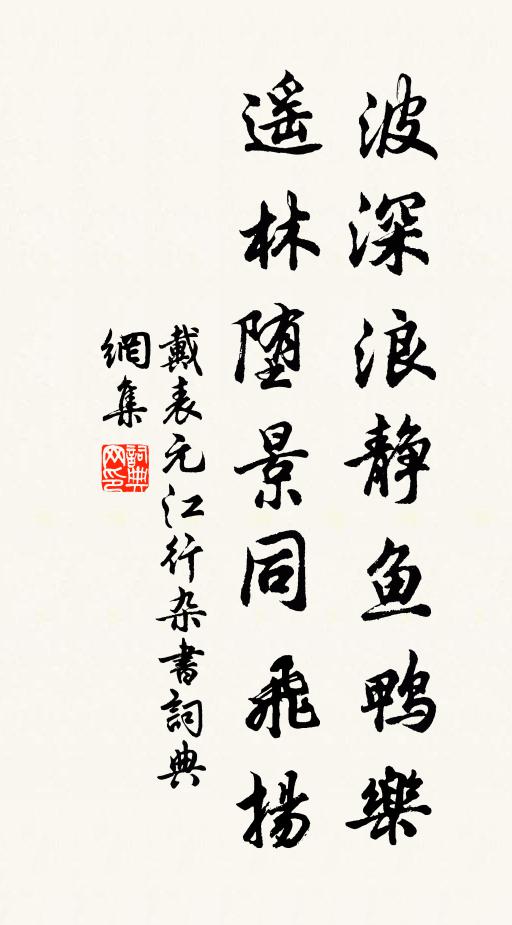 波深浪静鱼鸭樂
遥林堕景同飛揚
戴表元江行杂書詞典
網集
詞典网印